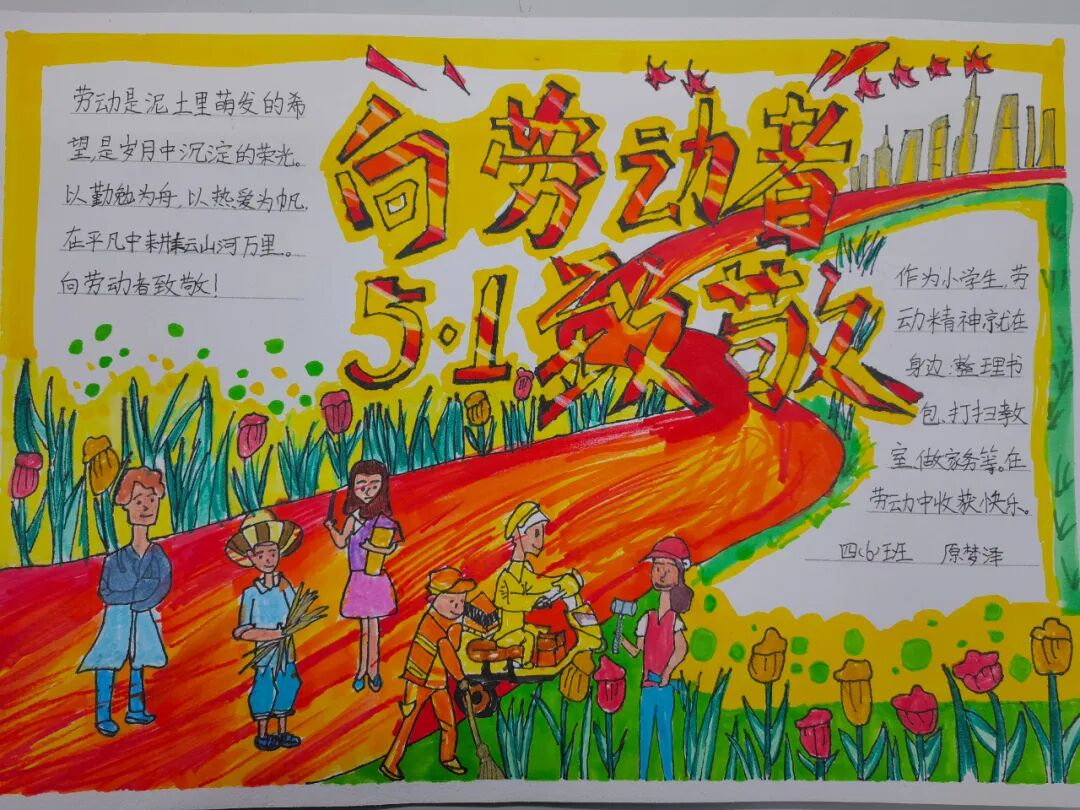 向劳动者
5·1致敬
劳动是泥土里萌发的希
望,是岁月中沉淀的荣光。
以勤勉为舟,以热爱为帆,
在平凡中耕耘山河万里。
向劳动者致敬!
作为小学生,劳
动精神就在
身边:整理书
包、打扫教
室、做家务等。在
劳动中收获快乐。
四(6)班 原梦泽